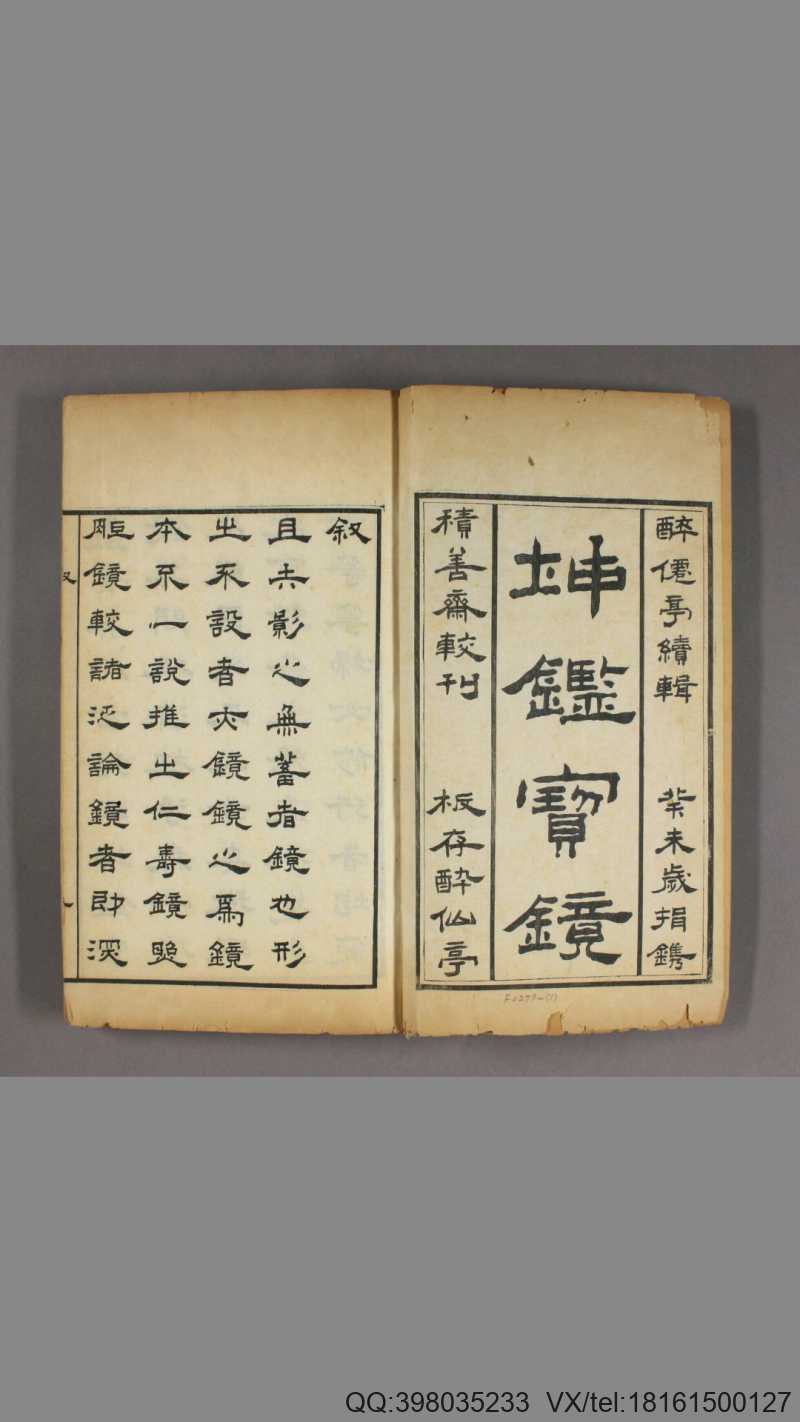 醉僊亭續輯 癸未歲捐鐫
坤鑑寶鏡
積善齋較刊 板存醉仙亭
叙
且夫影之無蓄者鏡也形
之不設者亦鏡鏡之爲鏡
本不一說推之仁壽鏡照
胆鏡較諸泛論鏡者卽深
叙
QQ:398035233 VX/tel:18161500127